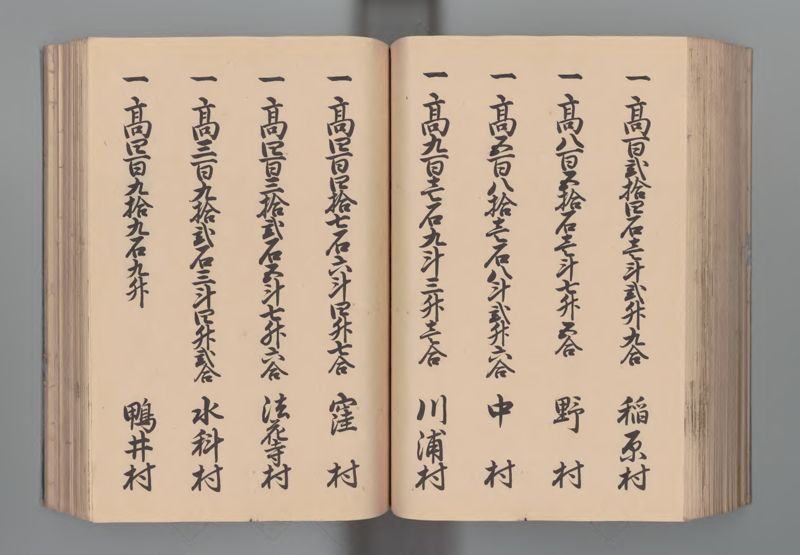 一 髙百弐拾四石壱斗弐升九合 稲原村
一 髙八百五拾石壱斗七升五合 野村
一 髙五百八拾壱石八斗弐升六合 中村
一 髙九百壱石九斗三升壱合 川浦村
一 髙四百四拾七石六斗四升七合 窪村
一 髙四百三拾弐石五斗七升六合 法花寺村
一 髙三百九拾弐石三斗四升弐合 水科村
一 髙四百九拾九石九升 鴨井村